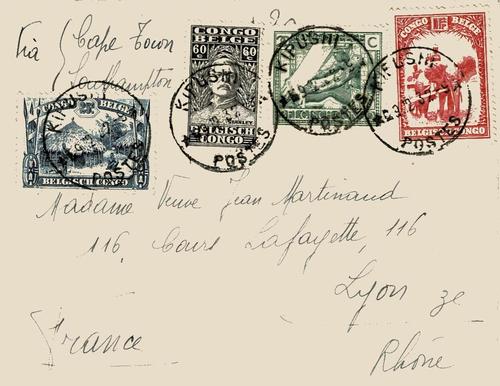 Via { Cape Town
Southampton
CONGO BELGE
1F
BELGISCH CONGO
CONGO
BELGE
60c 60c
STANLEY
BELGISCH
CONGO
C
CONGO BELGE
BELGISCH CONGO
KIPUSHI
POSTES
KIPUSHI
POSTES
KIPUSHI
POSTES
KIPUSHI
POSTES
Madame Veuve Jean Martinaud
116, Cours Lafayette, 116
Lyon 3e
Rhône
France